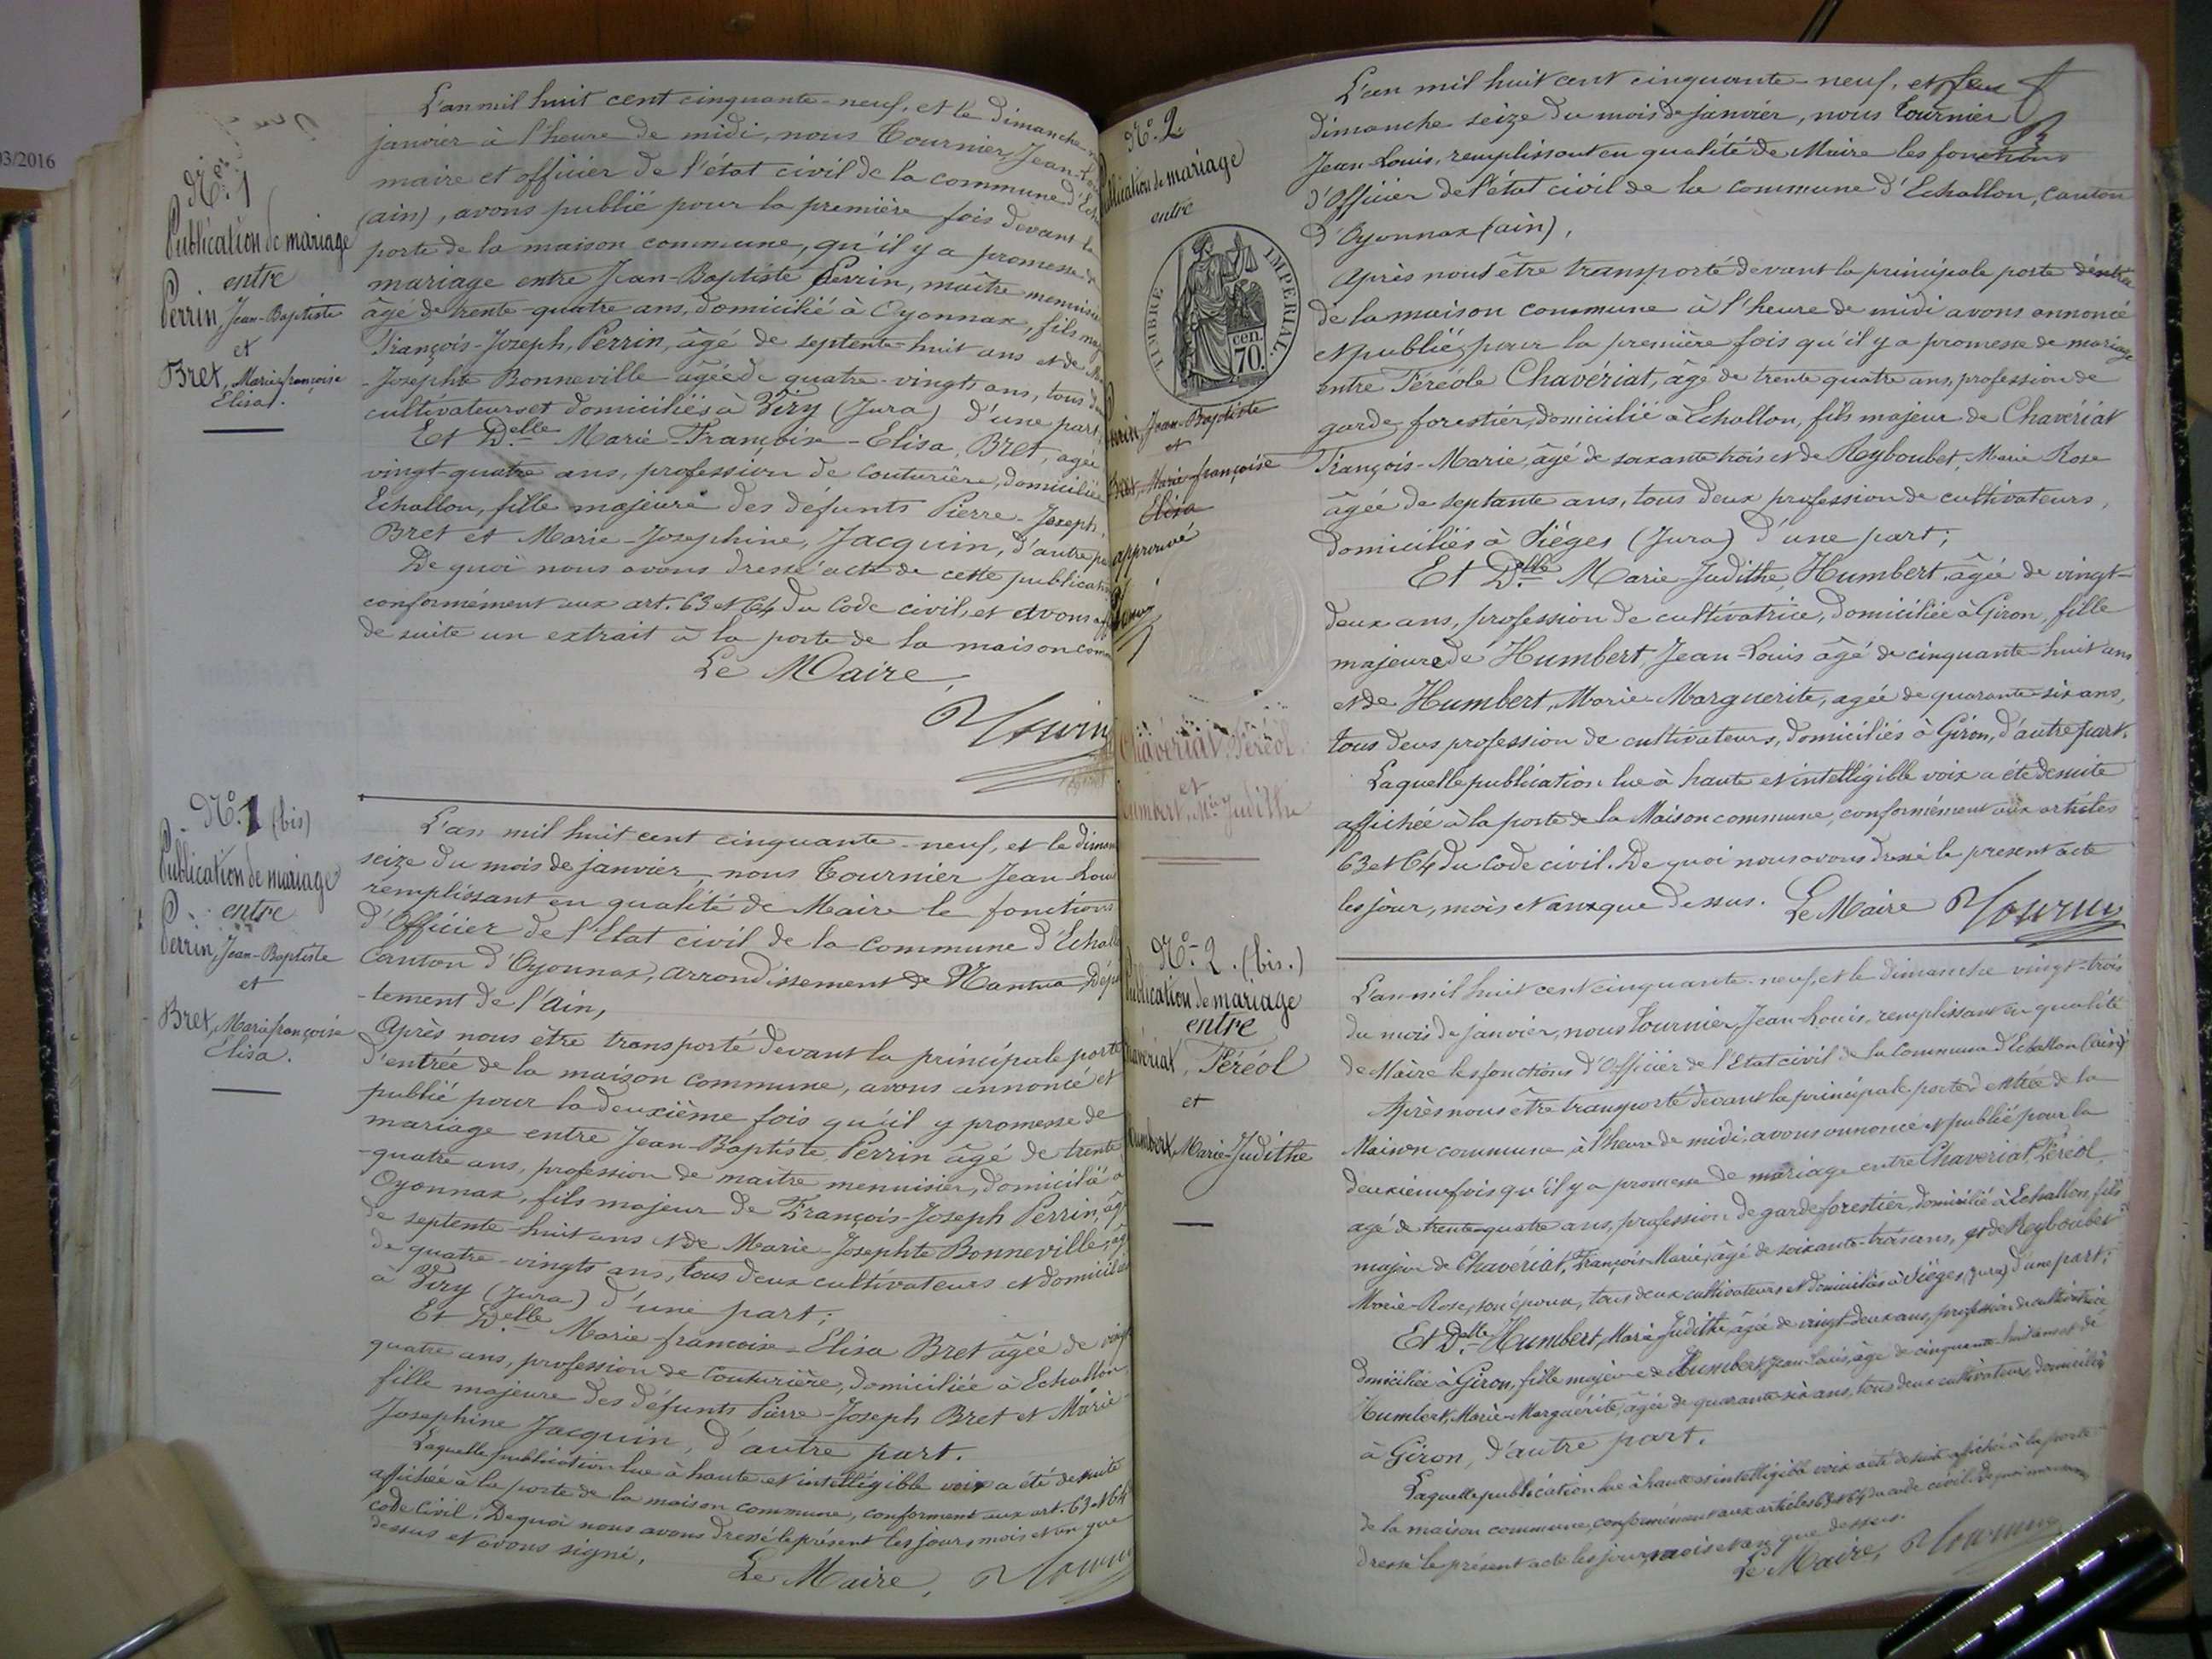 03/2016
N.º 1
Publication de mariage
entre
Perrin, Jean-Baptiste
et
Bret, Marie françoise
Elisa.
L'an mil huit cent cinquante-neuf, et le Dimanche
janvier à l'heure de midi, nous Tournier, Jean-Lou
maire et officier de l'état civil de la commune d'Echa
(ain), avons publié pour la première fois devant la
porte de la maison commune, qu'il y a promesse de
mariage entre Jean-Baptiste Perrin, maître menuisier
âgé de trente-quatre ans, domicilié à Oyonnax, fils maj
François-Joseph, Perrin, âgé de septente-huit ans et de
-Josephte Bonneville âgée de quatre-vingts ans, tous d
cultivateurs et domiciliés à Viry (Jura) d'une part.
Et D.elle Marie-Françoise-Elisa, Bret, agée
vingt-quatre ans, profession de couturière, domiciliée
Echallon, fille majeure des défunts Pierre-Joseph,
Bret et Marie-Josephine, Jacquin, d'autre pa
De quoi nous avons dressé acte de cette publicati
conformément aux art. 63 et 64 du Code civil, et avons aff
de suite un extrait à la porte de la maison com
Le Maire,
N.º 1 (bis)
Publication de mariage
entre
Perrin, Jean-Baptiste
et
Bret, Marie françoise
Elisa.
L'an mil huit cent cinquante-neuf, et le diman
seize du mois de janvier, nous Tournier Jean-Lou
remplissant en qualité de Maire le fonctions
d'Officier de l'Etat civil de la commune d'Echall
Canton d'Oyonnax, arrondissement de Nantua, Dépa
-tement de l'Ain,
Après nous être transporté devant la principale porte
d'entrée de la maison commune, avons annoncé et
publié pour la deuxième fois qu'il y promesse de
mariage entre Jean-Baptiste, Perrin âgé de trente
-quatre ans, profession de maître menuisier, domicilié à
Oyonnax, fils majeur de François-Joseph Perrin, âg
de septente-huit ans et de Marie-Josephte Bonneville, ag
de quatre-vingts ans, tous deux cultivateurs et domicilié
à Viry (Jura) d'une part;
Et D.elle Marie-francoise-Elisa Bret âgée de vingt
quatre ans, profession de Couturière, domiciliée à Echallon
fille majeure des défunts Pierre-Joseph Bret et Marie
Josephine Jacquin, d'autre part.
Laquelle publication lue à haute et intelligible voix a été de suite
affichée à la porte de la maison commune, conforment aux art. 63 et 64
code Civil. De quoi nous avons dressé le présent les jour, mois et an que
dessus et avons signé,
Le Maire,
N.º 2
Publication de mariage
entre
TIMBRE IMPERIAL.
70.
cen.
Perrin, Jean-Baptiste
et
Bret, Marie-françoise
Elisa
approuvé
Chavériat, Féréol
et
Humbert, M.ie Judithe
L'an mil huit cent cinquante-neuf, et
dimanche seize du mois de janvier, nous Tournier
Jean-Louis, remplissant en qualité de Maire les fonctions
d'Officier de l'état civil de la commune d'Echallon, canton
d'Oyonnax (ain),
Après nous être transporté devant la principale porte d'entrée
de la maison commune à l'heure de midi avons annoncé
et publié, pour la première fois qu'il y a promesse de mariage
entre Féréole Chavériat, âgé de trente quatre ans, profession de
garde forestier, domicilié à Echallon, fils majeur de Chavériat
François-Marie, âgé de soixante trois et de Reyboubet, Marie Rose
âgée de septante ans, tous deux profession de cultivateurs,
domiciliés à Siéges (Jura) d'une part;
Et D.elle Marie-Judithe, Humbert, âgée de vingt-
deux ans, profession de cultivatrice, domiciliée à Giron, fille
majeure de Humbert, Jean-Louis âgé de cinquante-huit ans
et de Humbert, Marie-Marguerite, agée de quarante-six ans,
tous deux profession de cultivateurs, domiciliés à Giron, d'autre part.
Laquelle publication lue à haute et intelligible voix a été de suite
affichée à la porte de la Maison commune, conformément aux articles
63 et 64 du Code civil. De quoi nous avons dressé le present acte
les jour, mois et an que dessus. Le Maire
N.º 2. (bis.)
Publication de mariage
entre
Chavériat, Féréol
et
Humbert, Marie-Judithe
L'an mil huit cent cinquante-neuf, et le dimanche vingt-trois
du mois de janvier, nous Tournier, Jean-Louis, remplissant en qualité
de Maire les fonctions d'Officier de l'Etat civil de la Commune d'Echallon (ain)
Après nous être transporté devant la principale porte d'entrée de la
Maison commune, à l'heure de midi, avons annoncé et publié pour la
deuxieme fois qu'il y a promesse de mariage entre Chaveriat, Féréol
agé de trente-quatre ans, profession de garde forestier, domicilié à Echallon, fils
majeur de Chavériat, François-Marie, âgé de soixante-trois ans, et de Reyboubet
Marie-Rose, son épouse, tous deux cultivateurs et domiciliés à Siéges, (Jura) d'une part;
Et D.elle Humbert, Marie Judithe, agée de vingt-deux ans, profession de cultivatrice
domiciliée à Giron, fille majeure de Humbert Jean-Louis, âgé de cinquante-huit ans et de
Humbert, Marie-Marguérite, âgée de quarante-six ans, tous deux cultivateurs, domiciliés
à Giron, d'autre part.
Laquelle publication lue à haute et intelligible voix a été de suite affichée à la porte
de la maison commune, conformément aux articles 63 et 64 du code civil. De quoi nous avons
dressé le présent acte les jour, mois et an que dessus.
Le Maire,